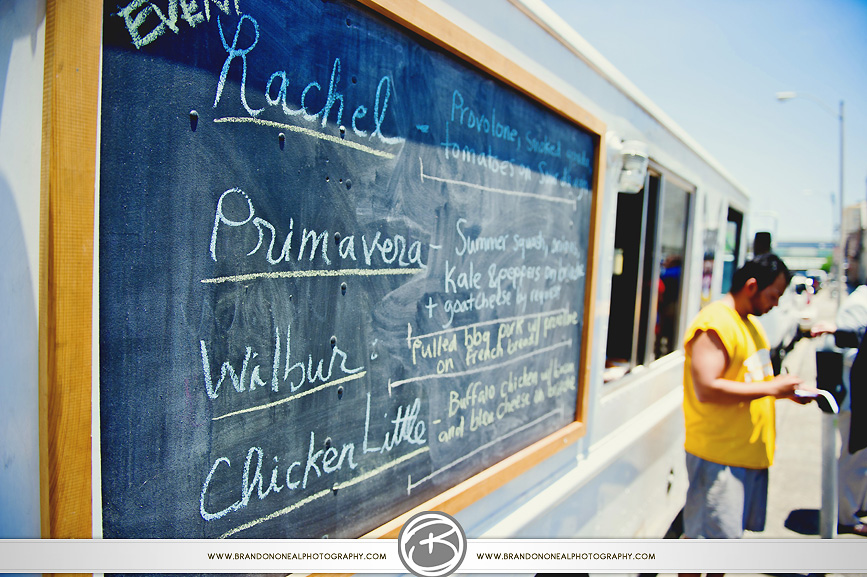 EVENT
Rachel - Provolone, smoked
tomatoes on
Primavera - Summer squash,
Kale & peppers on
+ goat cheese by request
Wilbur : Pulled bbq pork w/ provolone
on french bread
Chicken Little - Buffalo chicken w/ bacon
and bleu cheese on
WWW.BRANDONONEALPHOTOGRAPHY.COM
B
WWW.BRANDONONEALPHOTOGRAPHY.COM